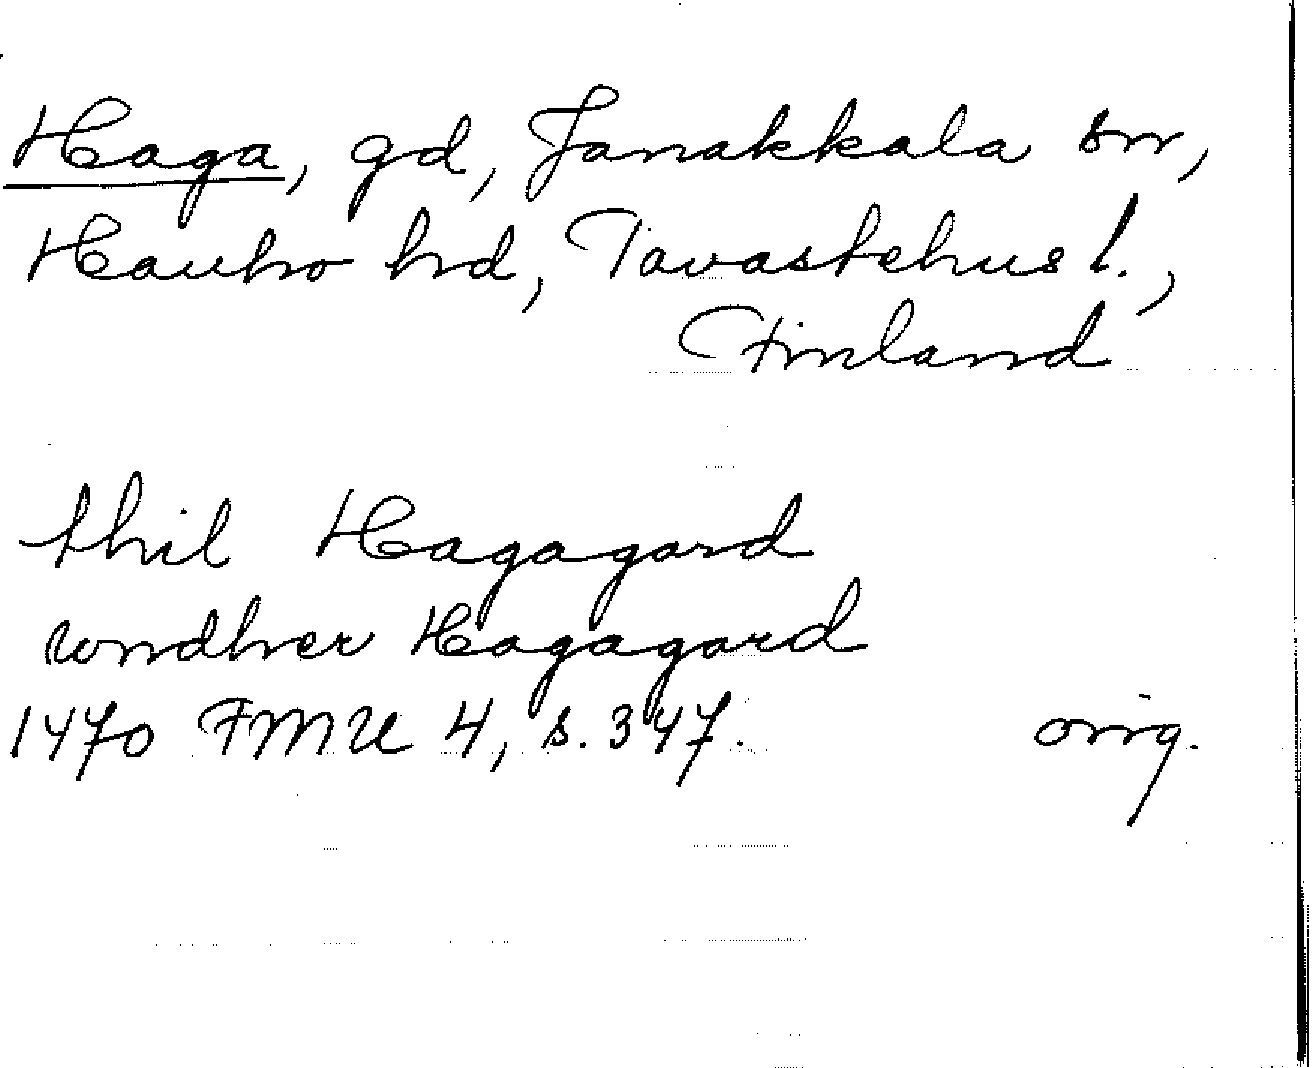 Haga, gd, Janakkala sn,
Hauho hd, Tavastehus l.,
Finland
thil Hagagard
wndher Hagagard
1470 FMU 4, s. 347. orig.